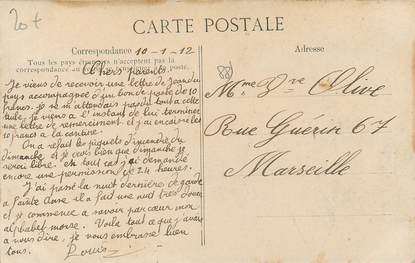 20 f
CARTE POSTALE
Correspondance 10-1-12
Tous les pays étrangers n'acceptent pas la
correspondance au
poste.
Chers parents.
Je viens de recevoir une lettre de Jean du
pays accompagnée d'un bon de poste de 10
francs. je ne m'attendais pas du tout à cette
tuile, je viens à l'instant de lui terminer
une lettre de remerciment. et j'ai encore les
10 francs à la cantine.
On a refait les piquets d'incendie du
dimanche, et je crois bien que dimanche je
serai libre. en tout cas j'ai demandé
encore une permission de 24 heures.
J'ai passé la nuit dernière de garde
à Sainte Anne il a fait une nuit très douce
et je commence à savoir par cœur mon
alphabet morse. Voilà tout ce que j'avais
à vous dire, je vous embrasse bien
tous.
Louis
Adresse
Mme Vve Olive
Rue Guérin 67
Marseille